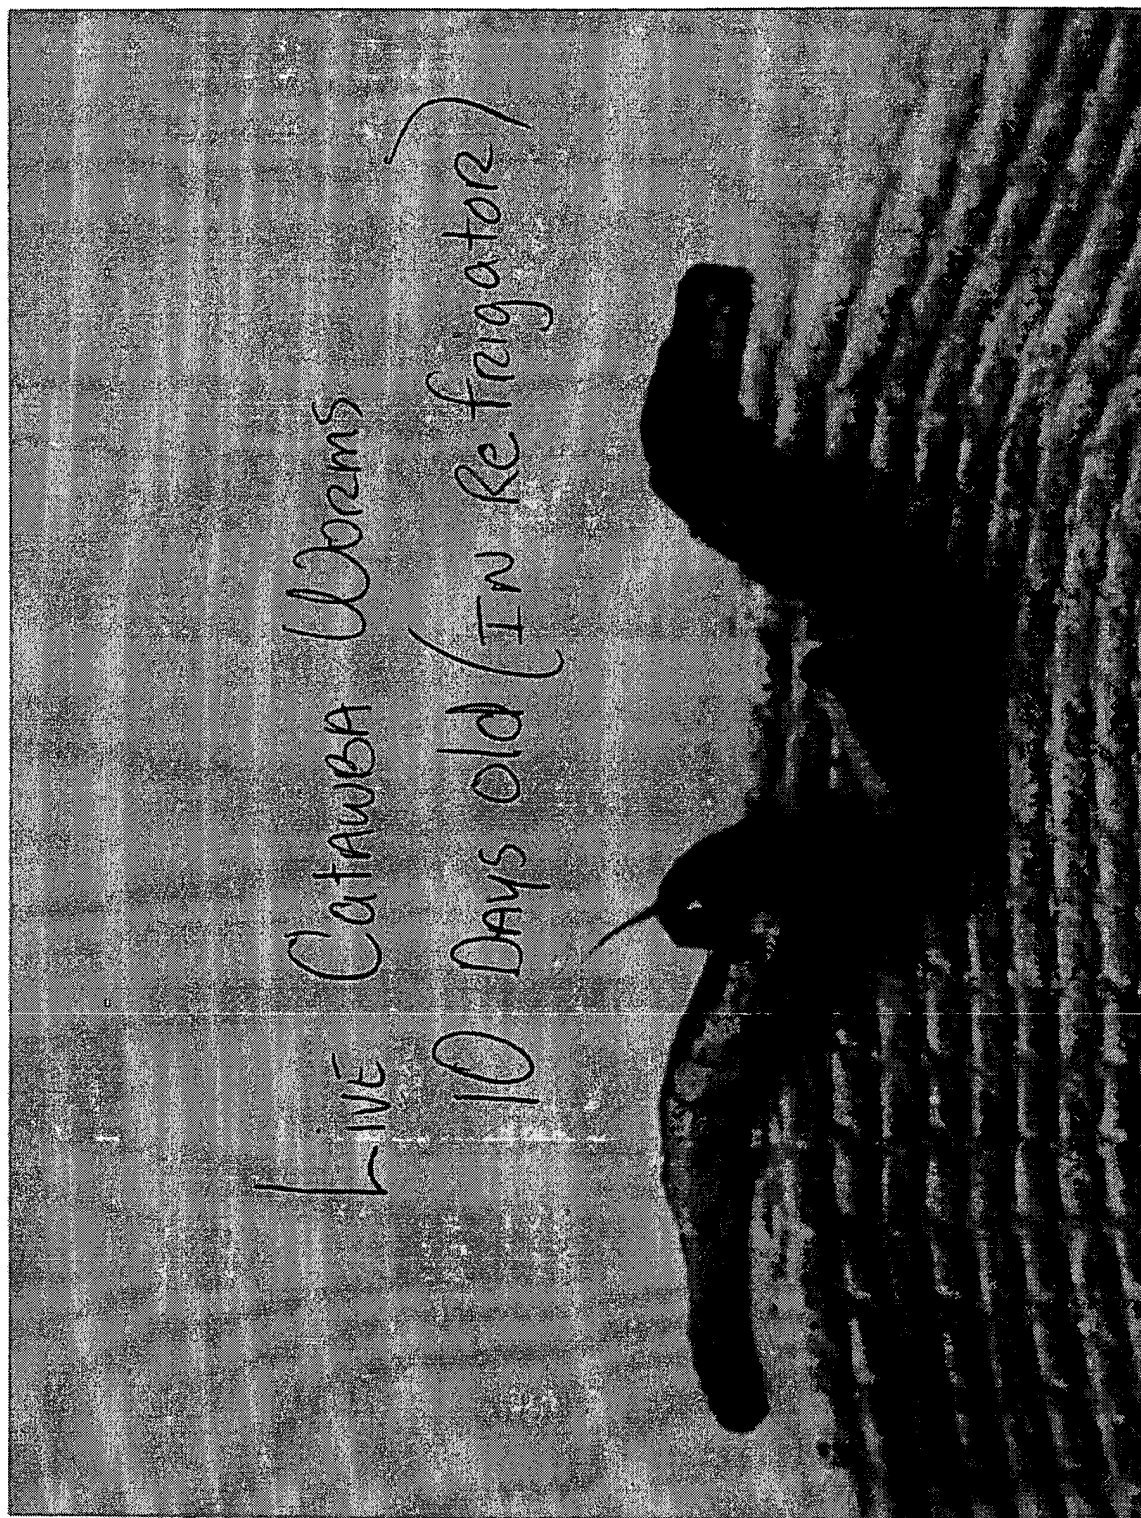 LIVE CatAWBA WORMS
10 DAYS old (IN Refrigator)